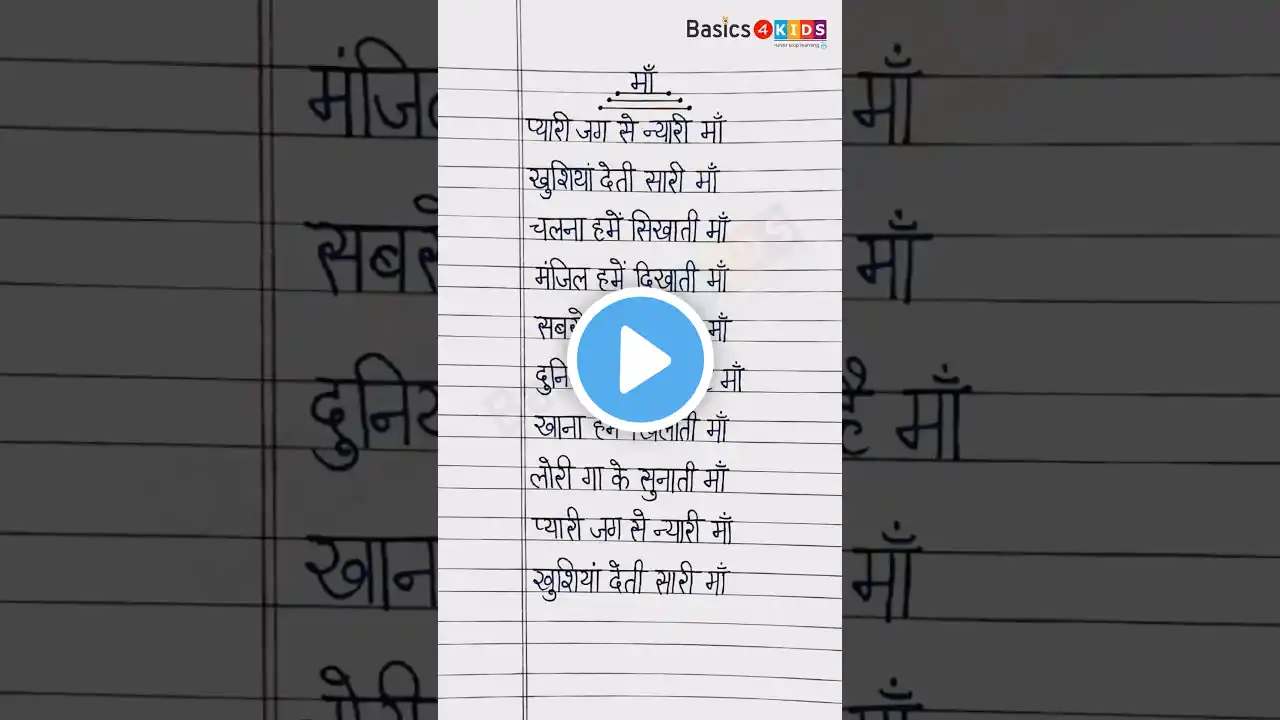 Basics 4 KIDS
never stop learning
माँ
प्यारी जग से न्यारी माँ
खुशियां देती सारी माँ
चलना हमें सिखाती माँ
मंजिल हमें दिखाती माँ
माँ
माँ
खाना माँ
लोरी गा के सुनाती माँ
प्यारी जग से न्यारी माँ
खुशियां देती सारी माँ